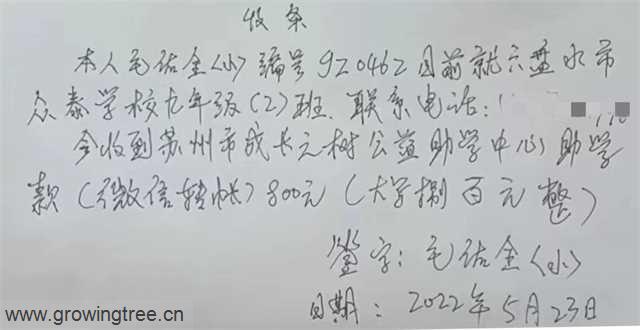 收条
本人毛佑金(小)编号920462目前就六盘水市
众泰学校九年级(2)班.联系电话:
今收到苏州市成长之树公益助学中心助学
款(微信转帐)800元(大写捌百元整)
签字:毛佑金(小)
日期:2022年5月23日
www.growingtree.cn